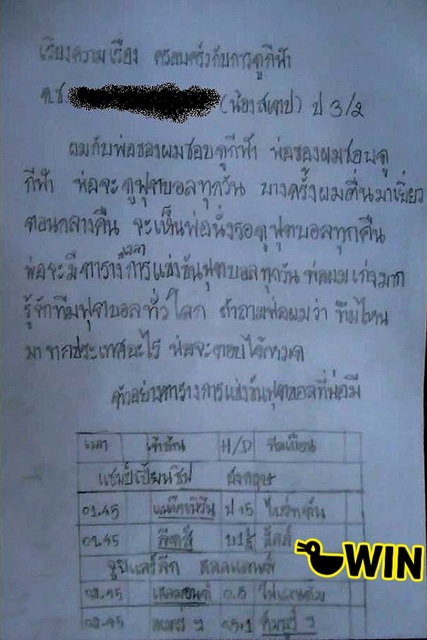 เรียงความเรื่อง ครอบครัวกับการดูกีฬา
ด.ช. (น้องสเตป) ป 3/2
ผมกับพ่อของผมชอบดูกีฬา พ่อของผมชอบดู
กีฬา พ่อจะดูฟุตบอลทุกวัน บางครั้งผมตื่นมาเยี่ยว
ตอนกลางคืน จะเห็นพ่อนั่งรอดูฟุตบอลทุกคืน
พ่อจะมีตารางเวลาการแข่งขันฟุตบอลทุกวัน พ่อผมเก่งมาก
รู้จักทีมฟุตบอลทั่วโลก ถ้าถามพ่อผมว่า ทีมไหน
มาจากประเทศอะไร พ่อจะตอบได้หมด
ตัวอย่างตารางการแข่งขันฟุตบอลที่พ่อมี
เวลา เจ้าบ้าน H/D ทีมเยือน
แชมป์เปียนชิพ อังกฤษ
01.45 ป
01.45 ลีดส์
WIN
0.5